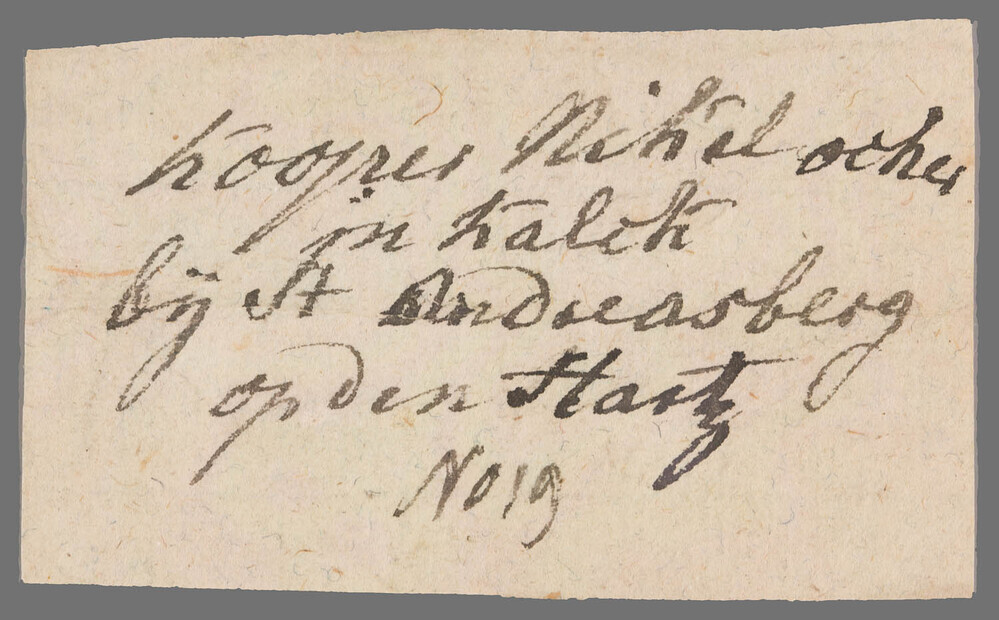 kooper Nikkel ocker
in kalck
bÿ St Andreasberg
op den Hartz
No 19